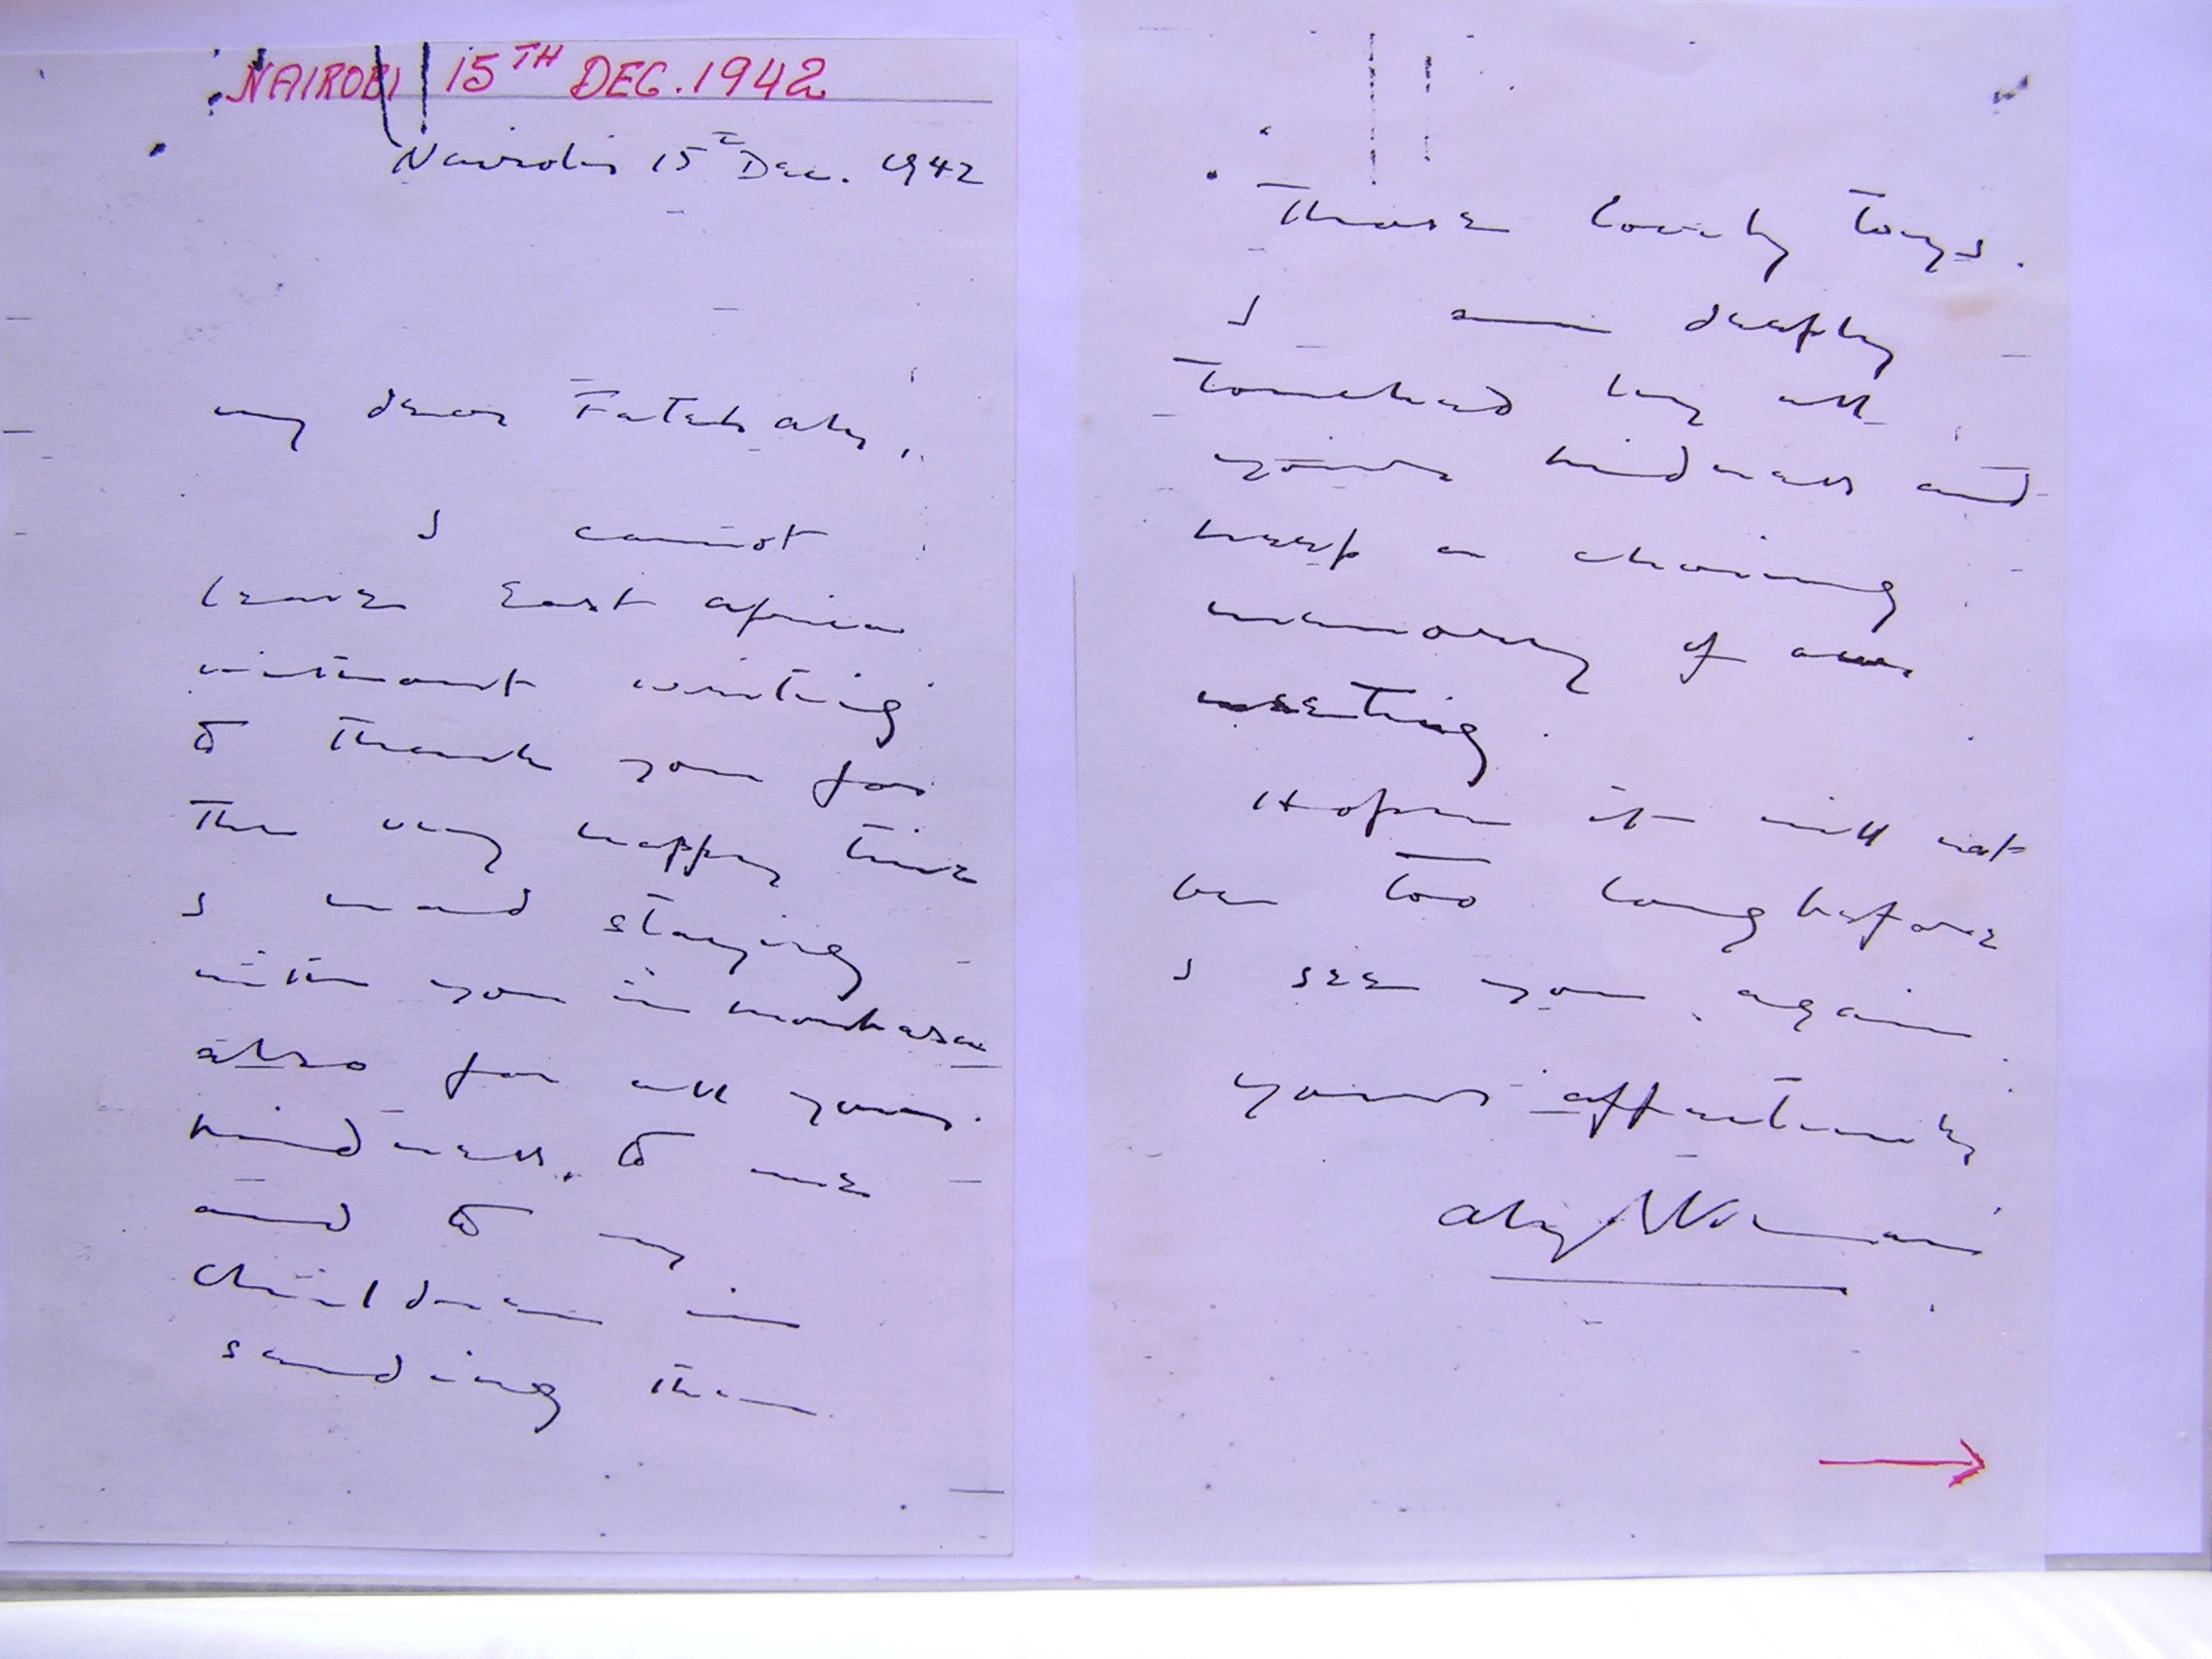 NAIROBI 15TH DEC. 1942
Nairobi 15th Dec. 1942
my dear Fatehaly,
I cannot
leave East Africa
without writing
to thank you for
the very happy time
I had staying
with you in Mombasa
also for all your
kindness to me
and to my
children in
sending them
those lovely toys.
I am deeply
touched by all
your kindness and
keep a
memory of our
meeting.
Hope it will not
be too long before
I see you again
yours affectionately
Aly